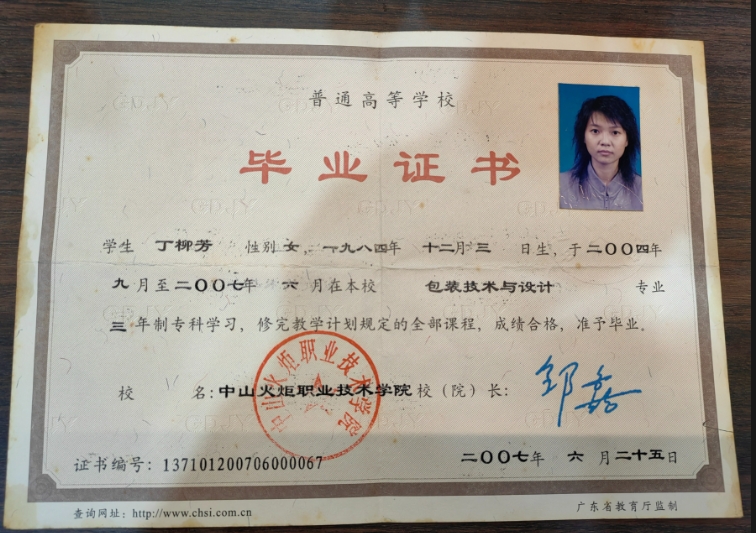 普通高等学校
毕业证书
学生 丁柳芳 性别 女，一九八四年 十二月 三 日生，于二〇〇四年
九 月至二〇〇七年 六 月在本校 包装技术与设计 专业
三 年制专科学习，修完教学计划规定的全部课程，成绩合格，准予毕业。
校 名：中山火炬职业技术学院 校（院）长：邹嘉
中山火炬职业技术学院
证书编号：137101200706000067 二〇〇七年 六 月二十五日
查询网址：http://www.chsi.com.cn 广东省教育厅监制